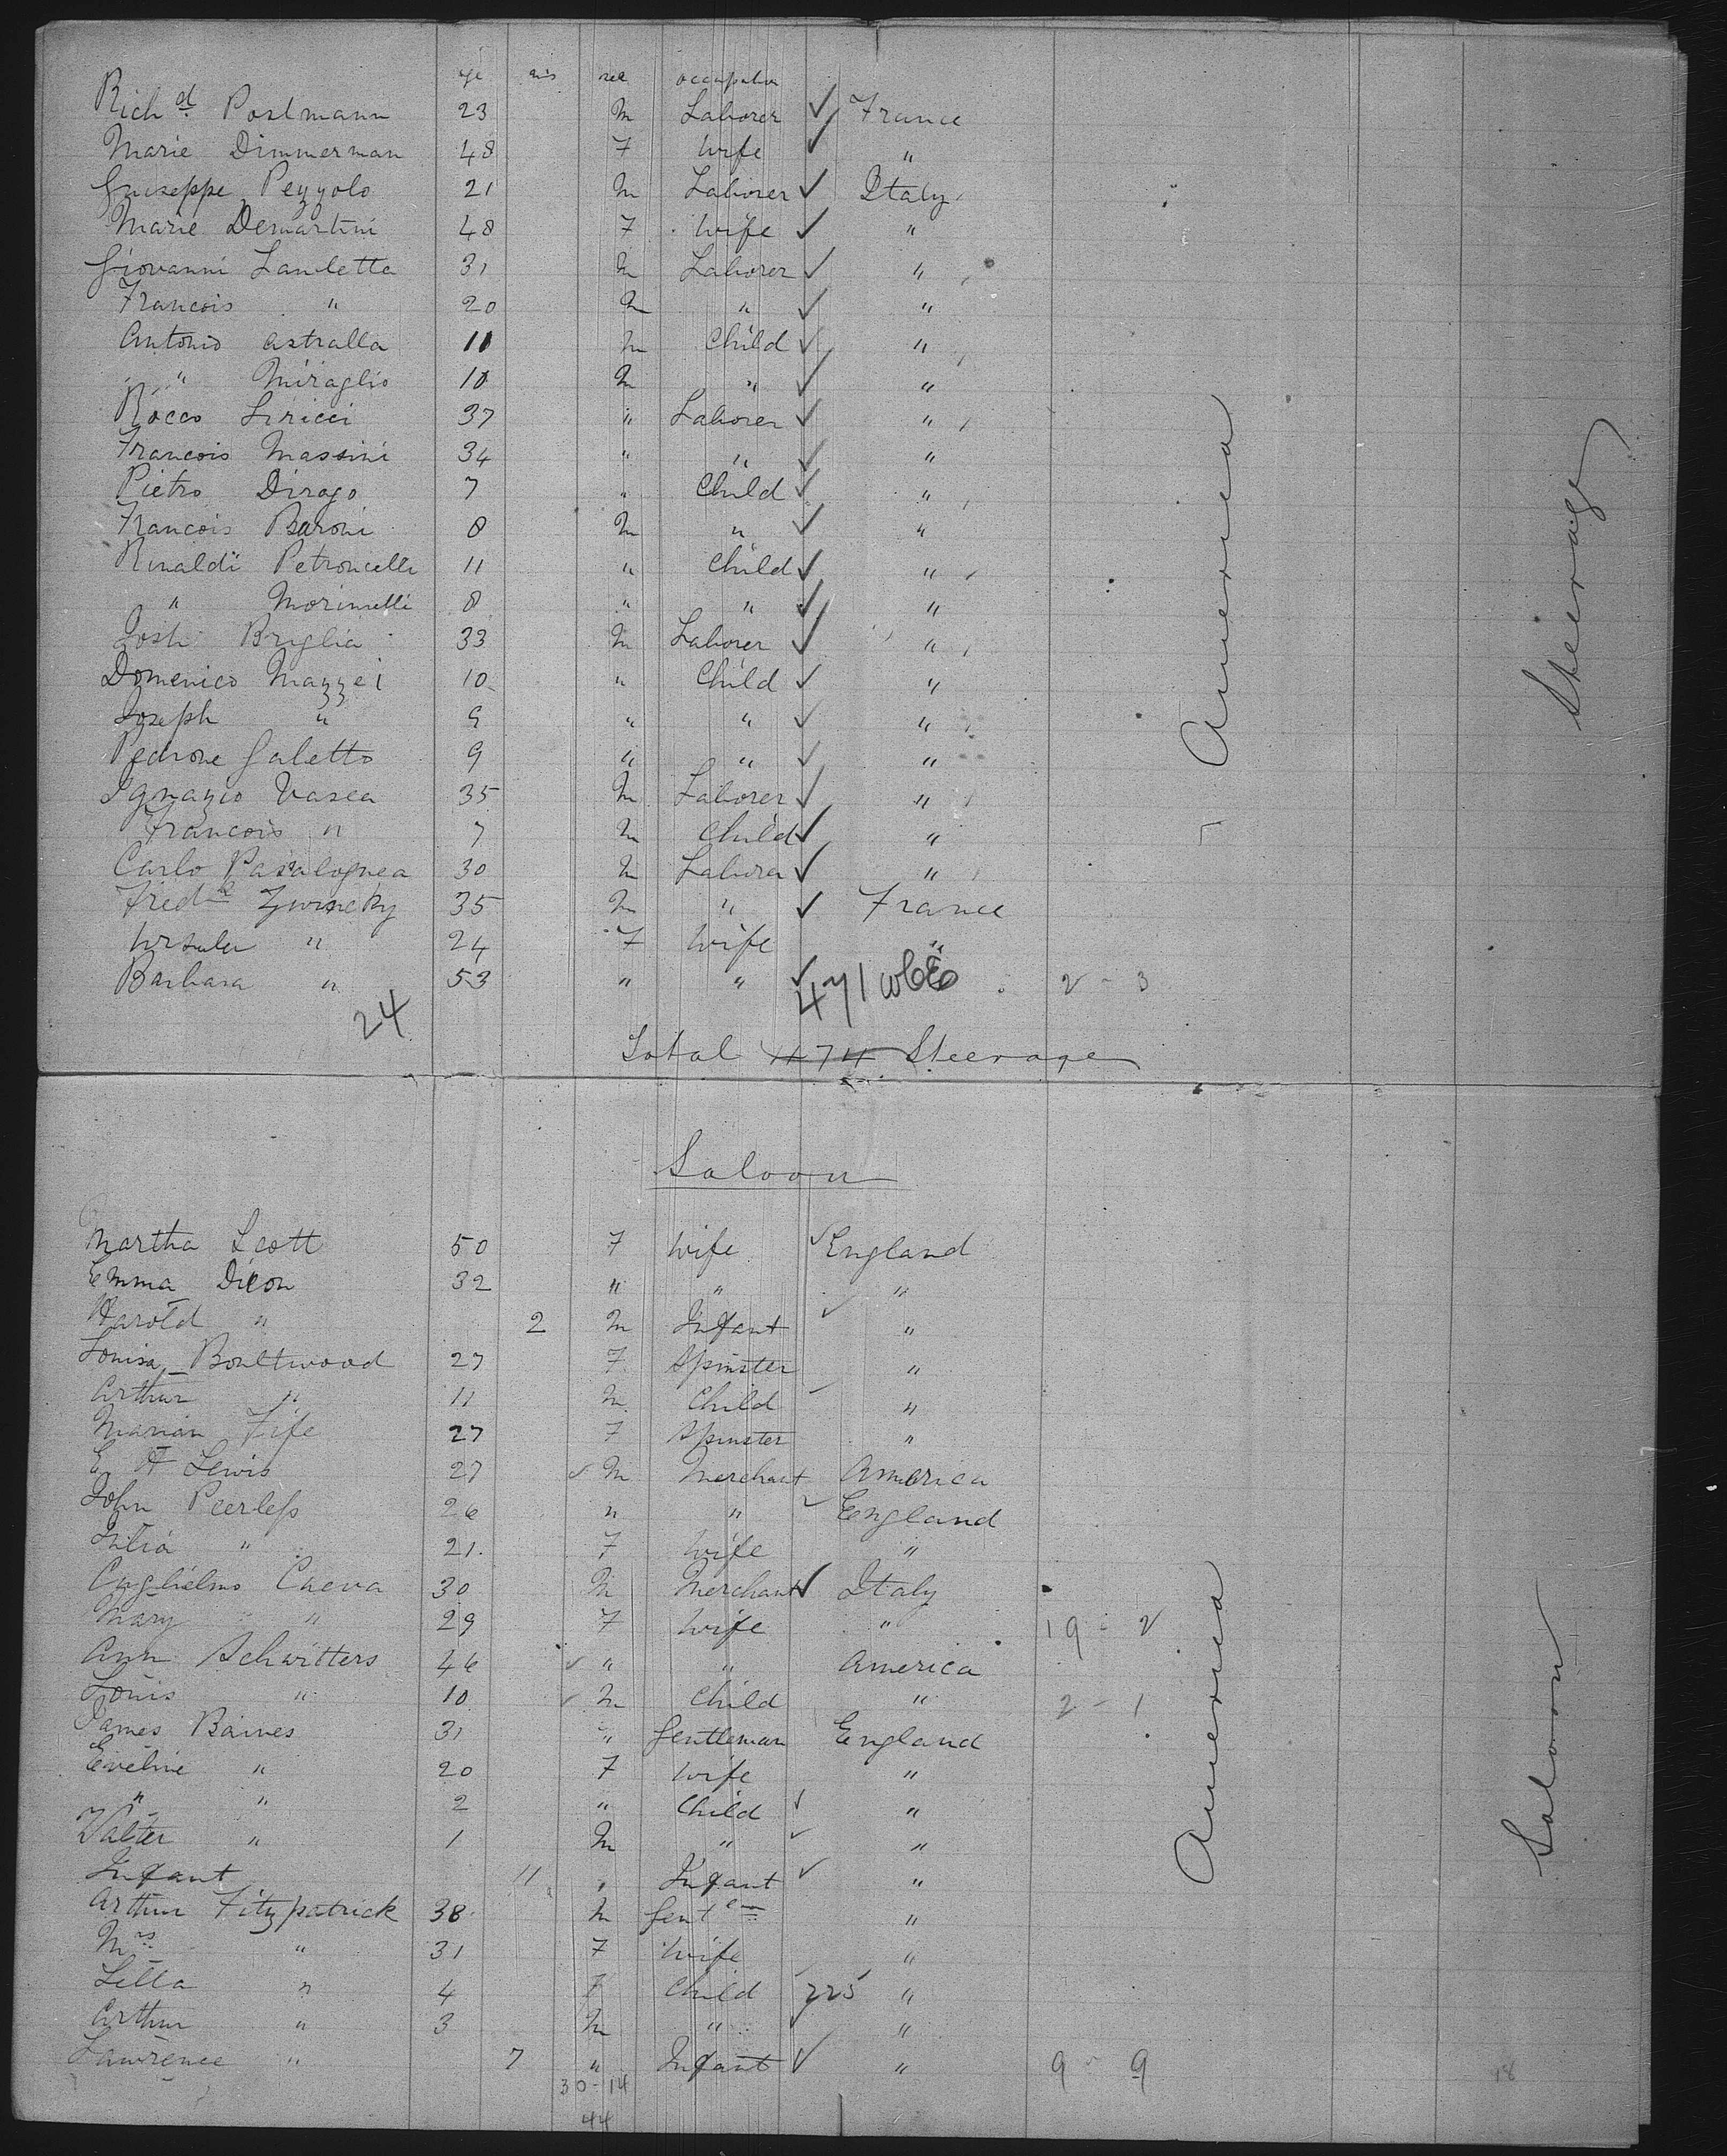 age mos sex occupation
Rich d Postmann 23 M Laborer ✓ France
Marie Dimmerman 48 F Wife ✓ "
Guiseppe Pezzolo 21 M Laborer ✓ Italy
Marie Demartini 48 F Wife ✓ "
Giovanni Lauletta 31 M Laborer ✓ "
Francois " 20 M " ✓ "
Antonio Astralla 11 M Child ✓ "
" Miraglio 10 M " ✓ "
Rocco Liricci 37 " Laborer ✓ "
Francois Massini 34 " " ✓ "
Pietro Dirago 7 " Child ✓ "
Francois Baroni 8 M " ✓ "
Rinaldi Petroncelli 11 " Child ✓ "
" Morinelli 8 " " ✓ "
Josh Briglia 33 M Laborer ✓ "
Domenico Mazzei 10 " Child ✓ "
Joseph " 9 " " ✓ "
Pedrone Galetto 9 " " ✓ "
Ignazio Vasca 35 M Laborer ✓ "
Francois " 7 M Child ✓ "
Carlo 30 M Labora ✓ "
Fred k 35 M " ✓ France
Ursula " 24 F Wife "
Barbara " 53 " " ✓ 2 - 3
24
471
Total 474 Steerage
America
Steerage
Saloon
Martha Scott 50 F Wife ✓ England
Emma Dixon 32 " " "
Harold " 2 M Infant ✓ "
Louisa Boultwood 27 F Spinster "
Arthur " 11 M Child "
Marian Fife 27 F Spinster "
E A Lewis 27 ✓ M Merchant America
John Peerless 26 " " England
Julia " 21 F Wife "
Cuglielmo Cueva 30 M Merchant ✓ Italy
Mary " 29 F Wife " 19 - 2
Ann Schwitters 46 ✓ " " America
Louis " 10 ✓ M Child " 2 - 1
James Baines 31 " Gentleman England
Eveline " 20 F Wife "
" " 2 " Child ✓ "
Walter " 1 M " ✓ "
Infant 11 " Infant ✓ "
Arthur Fitzpatrick 38 M Gent em "
Mrs " 31 F Wife "
Lella " 4 F Child 225 "
Arthur " 3 M " "
Lawrence " 7 " Infant ✓ " 9 - 9
30-14
44
America
Saloon
18